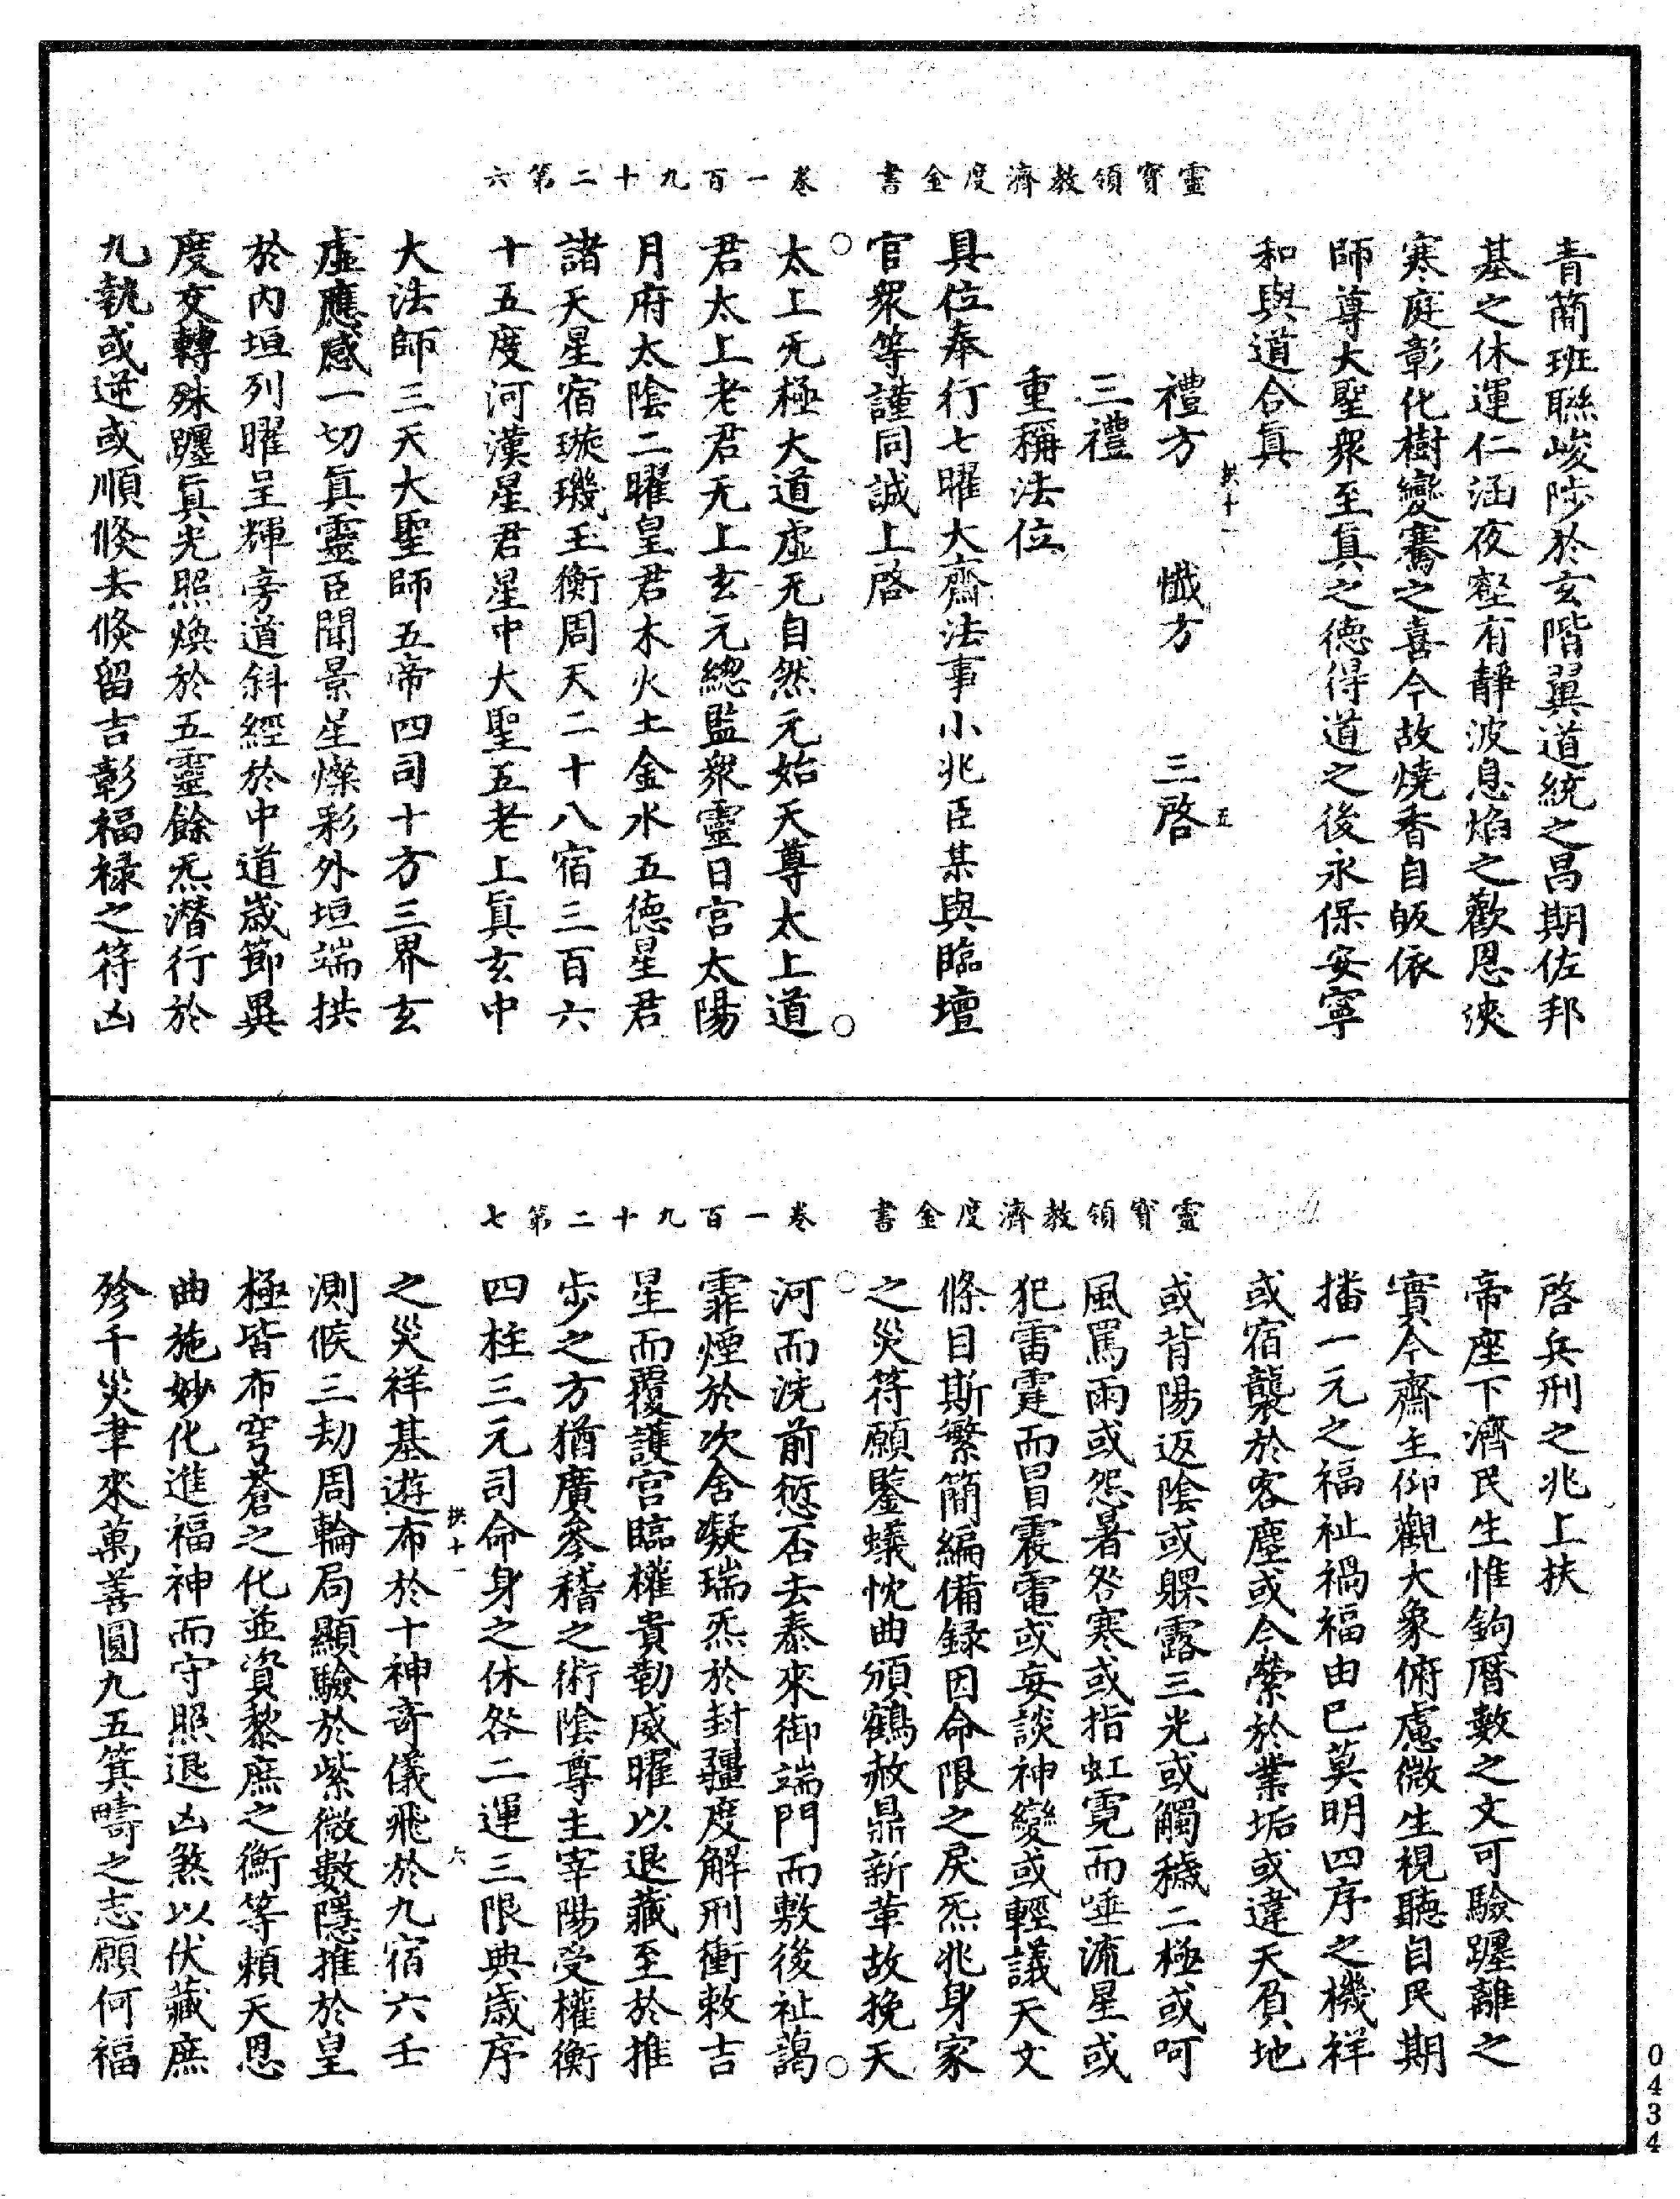 靈寶領教濟度金書　卷一百九十二第六
青簡班聯峻陟於玄階翼道統之昌期佐邦
基之休運仁涵夜壑有靜波息焰之歡恩浹
寒庭彰化樹變騫之喜今故燒香自皈依
師尊大聖眾至真之德得道之後永保安寧
和與道合真
拱十一　五
禮方　懺方　三啓
三禮
重稱法位
具位奉行七曜大齋法事小兆臣某與臨壇
官衆等謹同誠上啓
太上无極大道虛无自然元始天尊太上道
君太上老君无上玄元總監衆靈日宮太陽
月府太陰二曜皇君木火土金水五德星君
諸天星宿璇璣玉衡周天二十八宿三百六
十五度河漢星君星中大聖五老上真玄中
大法師三天大聖師五帝四司十方三界玄
虛應感一切真靈臣聞景星燦彩外垣端拱
於內垣列曜呈輝旁道斜經於中道歲節異
度交轉殊躔真光照煥於五靈餘炁潛行於
九執或逆或順倏去倏留吉彰福祿之符凶
靈寶領教濟度金書　卷一百九十二第七
啓兵刑之兆上扶
帝座下濟民生惟鉤曆數之文可驗躔離之
實今齋主仰觀大象俯慮微生視聽自民期
播一元之福祉禍福由己莫明四序之機祥
或宿襲於客塵或今縈於業垢或違天負地
或背陽返陰或躶露三光或觸穢二極或呵
風罵雨或怨暑咎寒或指虹霓而唾流星或
犯雷霆而冒震電或妄談神變或輕議天文
條目斯繁簡編備録因命限之戾炁兆身家
之災符願鑒蟻忱曲頒鶴赦鼎新革故挽天
河而洗前愆否去泰來御端門而敷後祉藹
霏煙於次舍凝瑞炁於封疆度解刑衝敕吉
星而覆護官臨權貴勒威曜以退藏至於推
步之方猶廣參稽之術陰尊主宰陽受權衡
四柱三元司命身之休咎二運三限典歲序
拱十一　六
之災祥基遊布於十神奇儀飛於九宿六壬
測候三劫周輪局顯驗於紫微數隱推於皇
極皆布穹蒼之化並資黎庶之衡等賴天恩
曲施妙化進福神而守照退凶煞以伏藏庶
殄千災聿來萬善圓九五箕疇之志願何福
0434